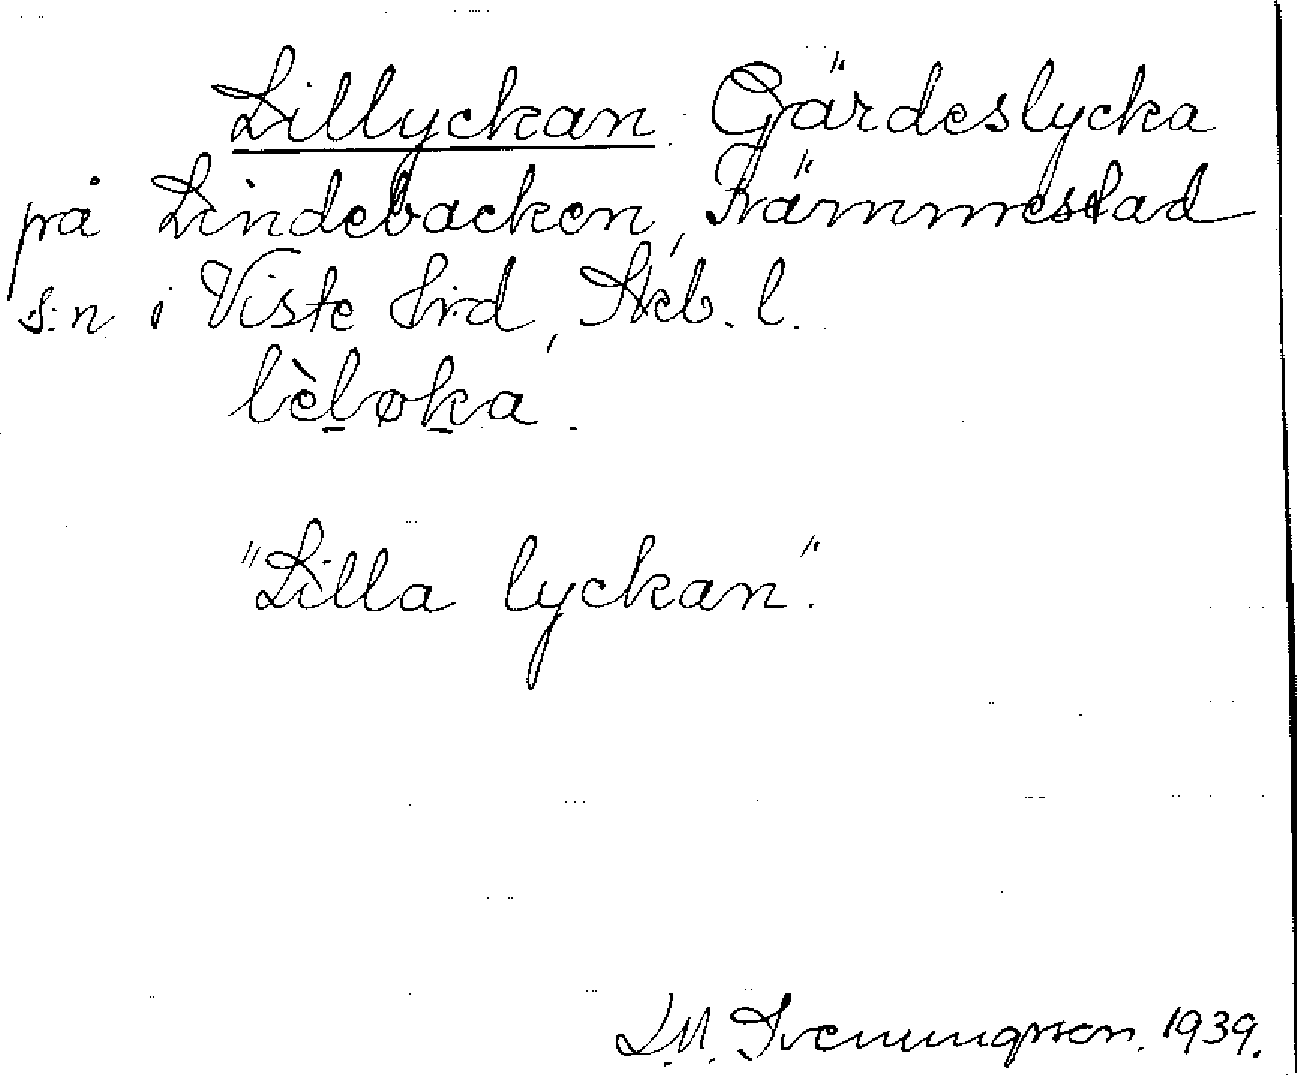 Lillyckan Gärdeslycka
på Lindebacken, Främmestad
s:n i Viste hrd, Skb. l.
lèløka.
"Lilla lyckan".
L.M. Svenungsson. 1939.